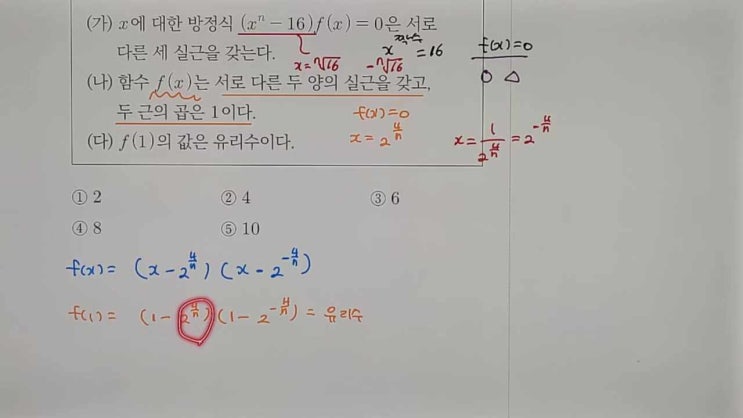 (가) x에 대한 방정식 (xⁿ-16)f(x)=0은 서로
다른 세 실근을 갖는다.
x^짝수=16
x=ⁿ√16 -ⁿ√16
f(x)=0
○ △
(나) 함수 f(x)는 서로 다른 두 양의 실근을 갖고,
두 근의 곱은 1이다.
f(x)=0
(다) f(1)의 값은 유리수이다.
x=2^(4/n)
x=1/2^(4/n)=2^(-4/n)
① 2 ② 4 ③ 6
④ 8 ⑤ 10
f(x)= (x-2^(4/n)) (x-2^(-4/n))
f(1)= (1-2^(4/n)) (1-2^(-4/n)) = 유리수